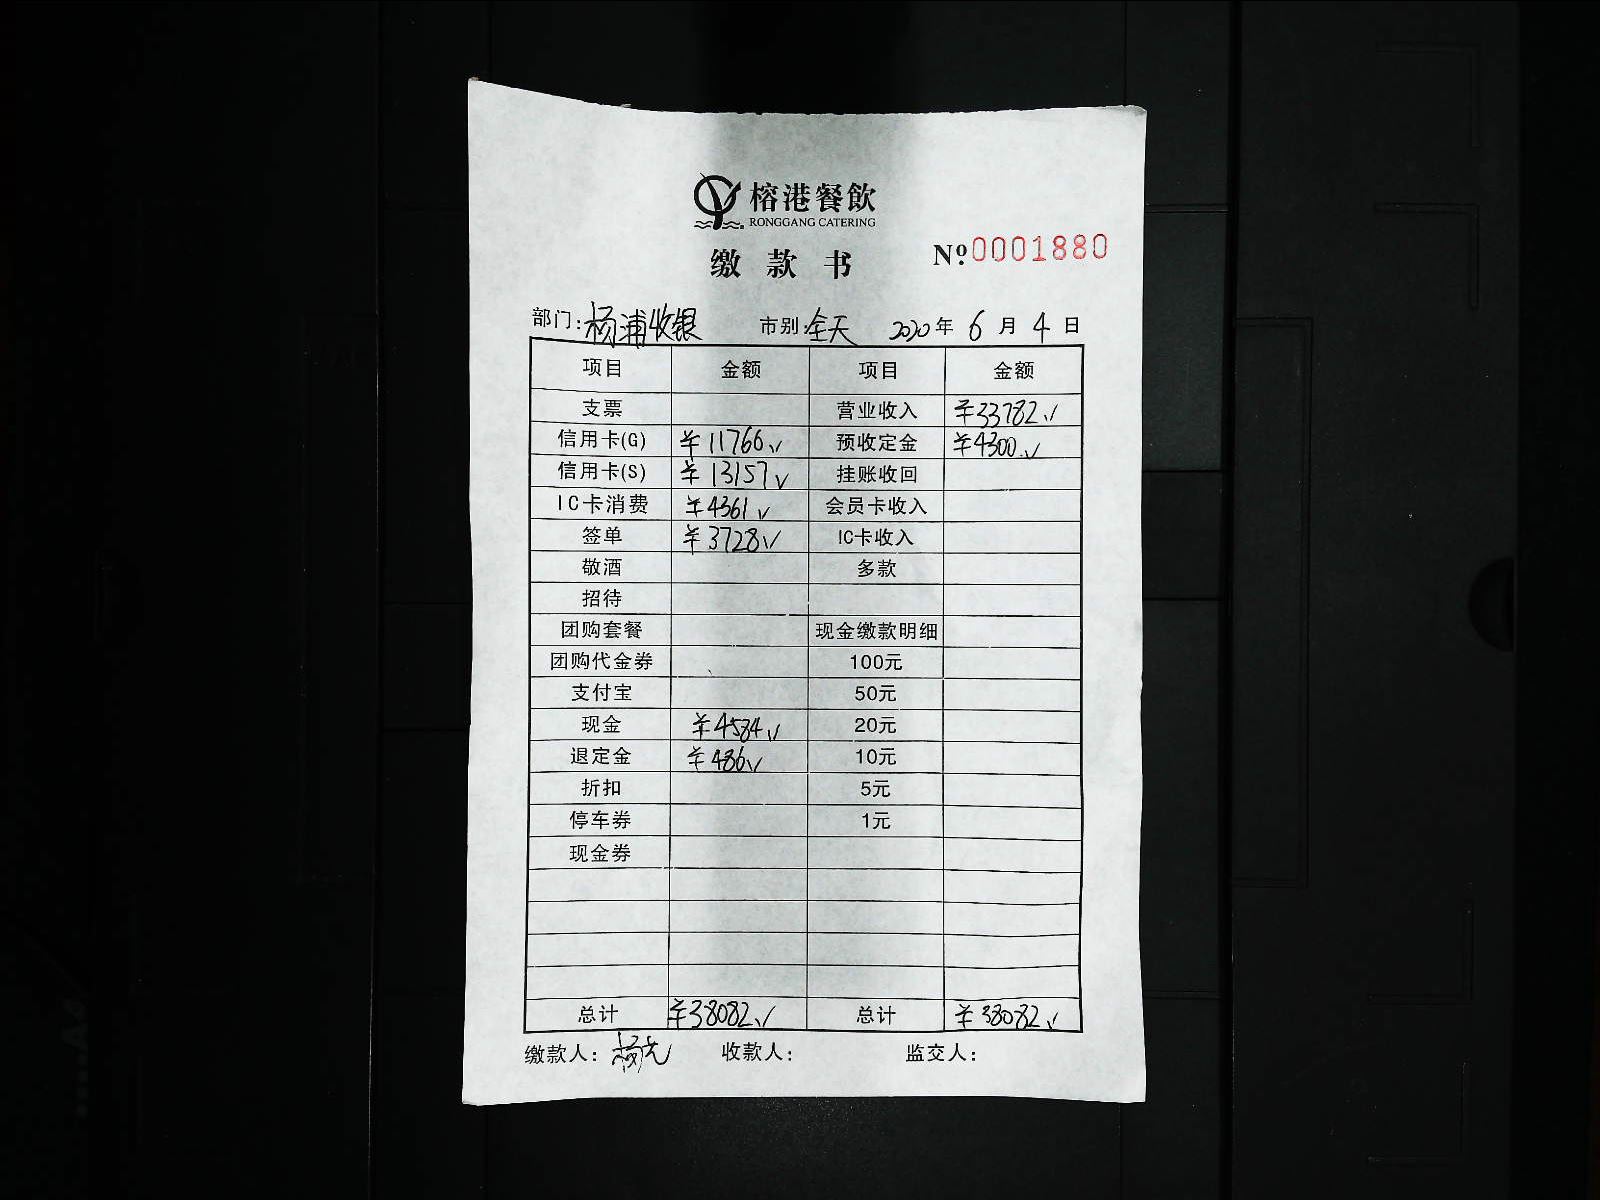 榕港餐飲
RONGGANG CATERING
缴款书 Nº.0001880
部门:杨浦收银 市别:全天 2020年6月4日
项目 金额 项目 金额
支票 营业收入 ¥33782
信用卡(G) ¥11766 预收定金 ¥4300
信用卡(S) ¥13157 挂账收回
IC卡消费 ¥4361 会员卡收入
签单 ¥3728 IC卡收入
敬酒 多款
招待
团购套餐 现金缴款明细
团购代金券 100元
支付宝 50元
现金 ¥4584 20元
退定金 ¥486 10元
折扣 5元
停车券 1元
现金券
总计 ¥38082 总计 ¥38082
缴款人: 收款人: 监交人: